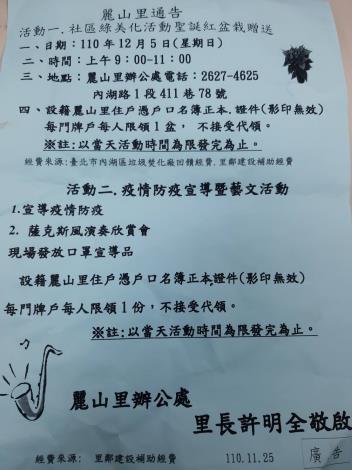 麗山里通告
活動一.社區綠美化活動聖誕紅盆栽贈送
一、日期：110年12月5日(星期日)
二、時間：上午9:00-11:00
三、地點：麗山里辦公處電話：2627-4625
內湖路1段411巷78號
四、設籍麗山里住戶憑戶口名簿正本.證件(影印無效)
每門牌戶每人限領1盆， 不接受代領。
※註:以當天活動時間為限發完為止。
經費來源:臺北市內湖區垃圾焚化廠回饋經費.里鄰建設補助經費
活動二.疫情防疫宣導暨藝文活動
1.宣導疫情防疫
2. 薩克斯風演奏欣賞會
現場發放口罩宣導品
設籍麗山里住戶憑戶口名簿正本證件(影印無效)
每門牌戶每人限領1份，不接受代領。
※註:以當天活動時間為限發完為止。
麗山里辦公處
里長許明全敬啟
經費來源: 里鄰建設補助經費 110.11.25 廣告